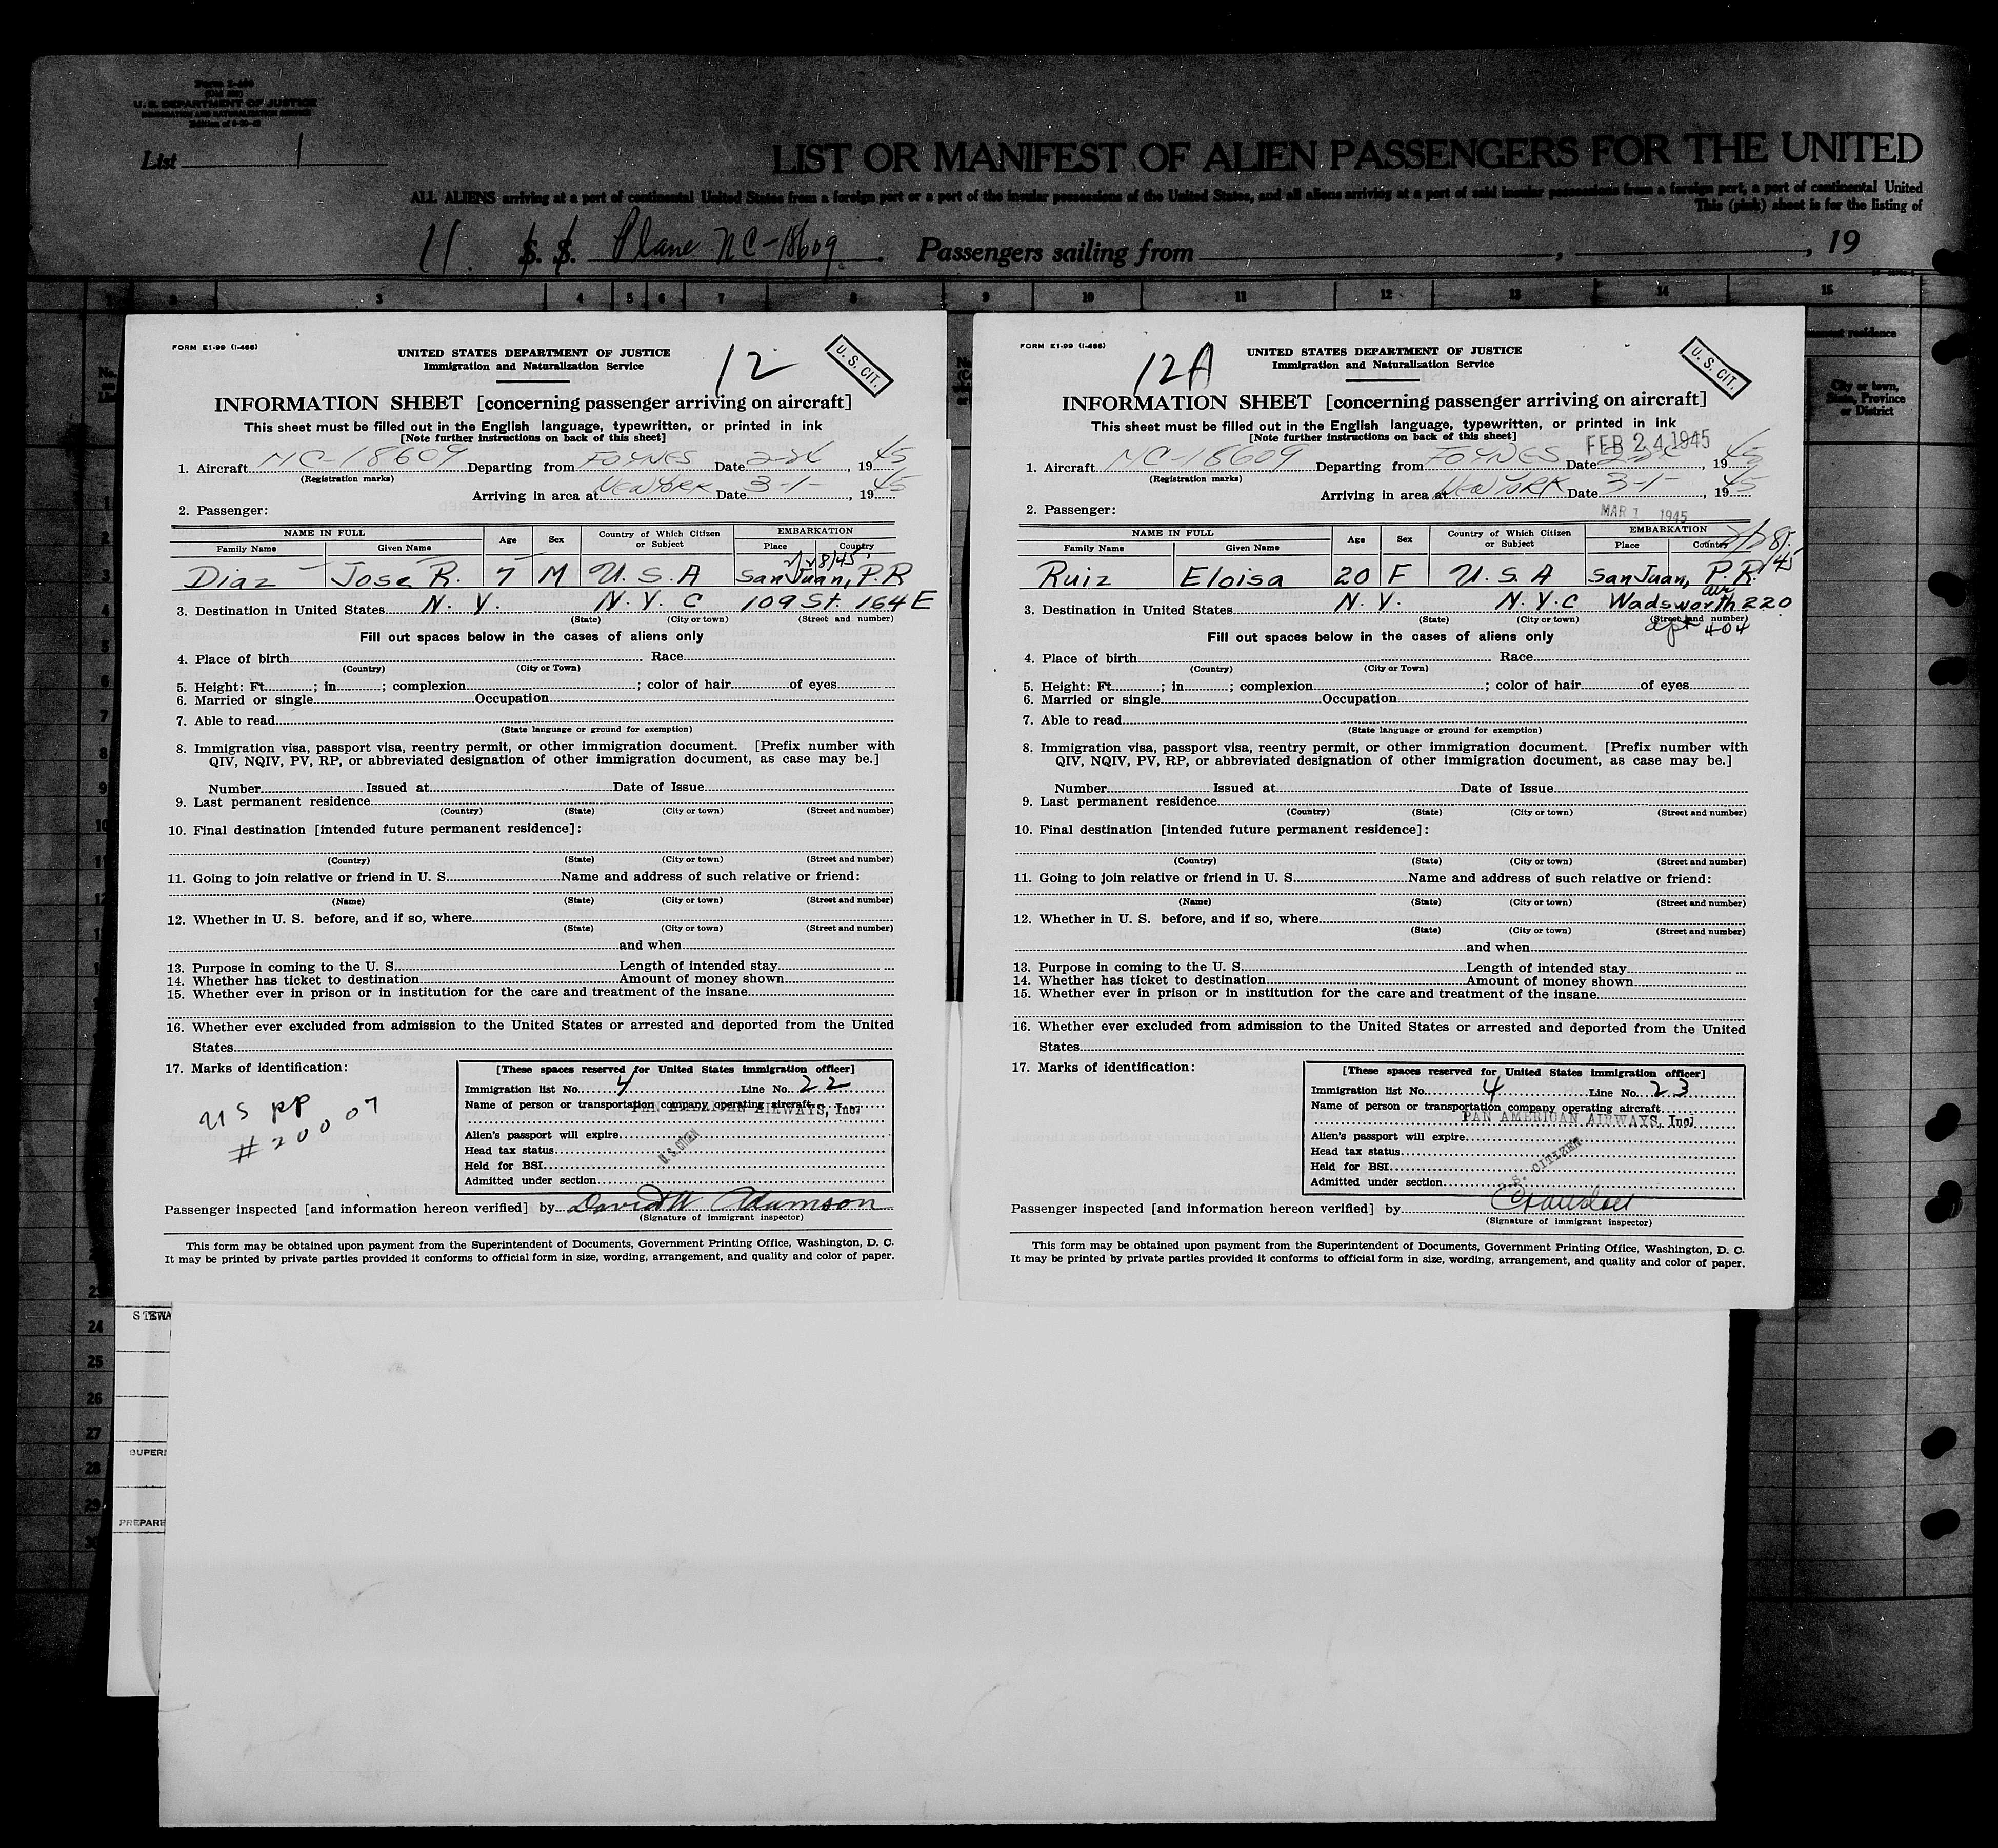 U. S. DEPARTMENT OF JUSTICE
IMMIGRATION AND NATURALIZATION SERVICE
List 1
LIST OR MANIFEST OF ALIEN PASSENGERS FOR THE UNITED
ALL ALIENS arriving at a port of continental United States from a foreign port or a part of the insular possessions of the United States, and all aliens arriving at a port of said insular possessions from a foreign port, a port of continental United
This (pink) sheet is for the listing of
11. S. S. Plane NC-18609. Passengers sailing from , , 19
3 4 5 6 7 8 9 10 11 12 13 14 15
FORM E1-99 (I-466)
UNITED STATES DEPARTMENT OF JUSTICE
Immigration and Naturalization Service
12
U. S. CIT.
INFORMATION SHEET [concerning passenger arriving on aircraft]
This sheet must be filled out in the English language, typewritten, or printed in ink
[Note further instructions on back of this sheet]
1. Aircraft NC-18609 Departing from FOYNES Date , 1945
(Registration marks)
Arriving in area at NEW YORK Date 3-1- , 1945
2. Passenger:
NAME IN FULL Age Sex Country of Which Citizen or Subject EMBARKATION
Family Name Given Name Place Country
2/28/45
Diaz Jose R. 7 M U. S. A San Juan, P. R
3. Destination in United States N. Y. N. Y. C 109 St. 164 E
(State) (City or town) (Street and number)
Fill out spaces below in the cases of aliens only
4. Place of birth Race
(Country) (City or Town)
5. Height: Ft. ; in ; complexion ; color of hair of eyes
6. Married or single Occupation
7. Able to read
(State language or ground for exemption)
8. Immigration visa, passport visa, reentry permit, or other immigration document. [Prefix number with
QIV, NQIV, PV, RP, or abbreviated designation of other immigration document, as case may be.]
Number Issued at Date of Issue
9. Last permanent residence
(Country) (State) (City or town) (Street and number)
10. Final destination [intended future permanent residence]:
(Country) (State) (City or town) (Street and number)
11. Going to join relative or friend in U. S. Name and address of such relative or friend:
(Name) (State) (City or town) (Street and number)
12. Whether in U. S. before, and if so, where
(State) (City or town) (Street and number)
and when
13. Purpose in coming to the U. S. Length of intended stay
14. Whether has ticket to destination Amount of money shown
15. Whether ever in prison or in institution for the care and treatment of the insane
16. Whether ever excluded from admission to the United States or arrested and deported from the United
States
17. Marks of identification:
US PP
# 20007
[These spaces reserved for United States immigration officer]
Immigration list No. 4 Line No. 22
Name of person or transportation company operating aircraft
PAN AMERICAN AIRWAYS, Inc.
Alien's passport will expire
Head tax status
U. S. CITIZEN
Held for BSI
Admitted under section
Passenger inspected [and information hereon verified] by David W Adamson
(Signature of immigrant inspector)
This form may be obtained upon payment from the Superintendent of Documents, Government Printing Office, Washington, D. C.
It may be printed by private parties provided it conforms to official form in size, wording, arrangement, and quality and color of paper.
FORM E1-99 (I-466)
UNITED STATES DEPARTMENT OF JUSTICE
Immigration and Naturalization Service
12A
U. S. CIT.
INFORMATION SHEET [concerning passenger arriving on aircraft]
This sheet must be filled out in the English language, typewritten, or printed in ink
[Note further instructions on back of this sheet]
FEB 24 1945
1. Aircraft NC-18609 Departing from FOYNES Date , 1945
(Registration marks)
Arriving in area at NEW YORK Date 3-1- , 1945
2. Passenger:
MAR 1 1945
NAME IN FULL Age Sex Country of Which Citizen or Subject EMBARKATION
Family Name Given Name Place Country
Ruiz Eloisa 20 F U. S. A San Juan, P. R.
3. Destination in United States N. Y. N. Y. C Wadsworth 220
(State) (City or town) (Street and number)
apt 404
Fill out spaces below in the cases of aliens only
4. Place of birth Race
(Country) (City or Town)
5. Height: Ft. ; in ; complexion ; color of hair of eyes
6. Married or single Occupation
7. Able to read
(State language or ground for exemption)
8. Immigration visa, passport visa, reentry permit, or other immigration document. [Prefix number with
QIV, NQIV, PV, RP, or abbreviated designation of other immigration document, as case may be.]
Number Issued at Date of Issue
9. Last permanent residence
(Country) (State) (City or town) (Street and number)
10. Final destination [intended future permanent residence]:
(Country) (State) (City or town) (Street and number)
11. Going to join relative or friend in U. S. Name and address of such relative or friend:
(Name) (State) (City or town) (Street and number)
12. Whether in U. S. before, and if so, where
(State) (City or town) (Street and number)
and when
13. Purpose in coming to the U. S. Length of intended stay
14. Whether has ticket to destination Amount of money shown
15. Whether ever in prison or in institution for the care and treatment of the insane
16. Whether ever excluded from admission to the United States or arrested and deported from the United
States
17. Marks of identification:
[These spaces reserved for United States immigration officer]
Immigration list No. 4 Line No. 23
Name of person or transportation company operating aircraft
PAN AMERICAN AIRWAYS, Inc.
Alien's passport will expire
Head tax status
U. S. CITIZEN
Held for BSI
Admitted under section
Passenger inspected [and information hereon verified] by
(Signature of immigrant inspector)
This form may be obtained upon payment from the Superintendent of Documents, Government Printing Office, Washington, D. C.
It may be printed by private parties provided it conforms to official form in size, wording, arrangement, and quality and color of paper.
City or town,
State, Province
or District
24
25
26
27
28
29